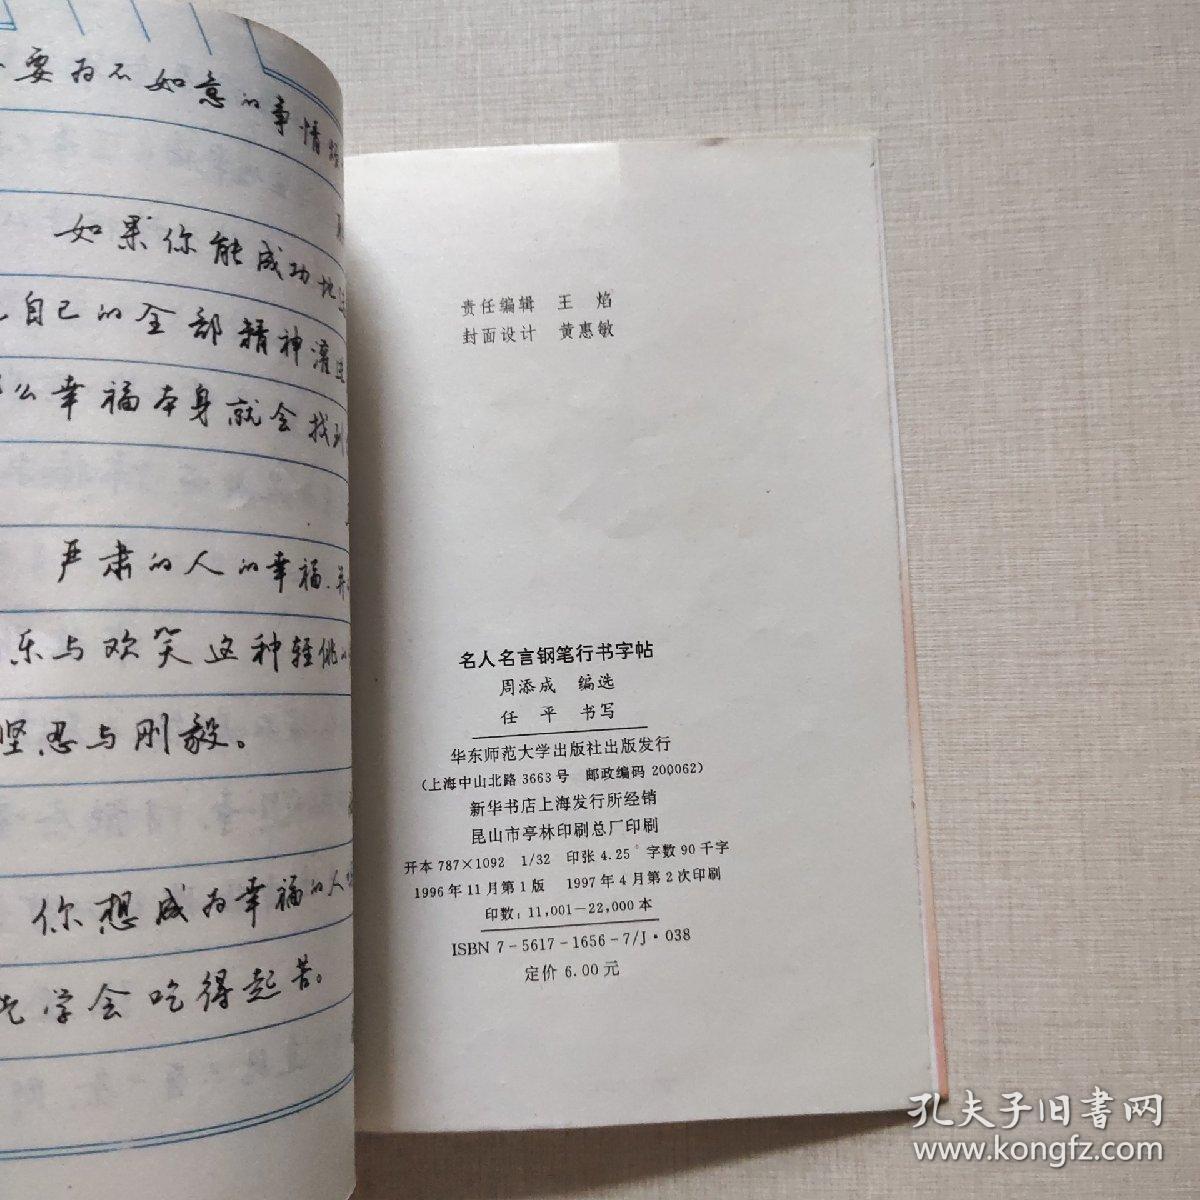 要为不如意的事情
如果你能成功地
自己的全部精神灌
么幸福本身就会找到
严肃的人的幸福、并
乐与欢笑这种轻佻
坚忍与刚毅。
你想成为幸福的人
先学会吃得起苦。
责任编辑 王 焰
封面设计 黄惠敏
名人名言钢笔行书字帖
周添成 编选
任 平 书写
华东师范大学出版社出版发行
(上海中山北路3663号 邮政编码200062)
新华书店上海发行所经销
昆山市亭林印刷总厂印刷
开本787×1092 1/32 印张4.25 字数90千字
1996年11月第1版 1997年4月第2次印刷
印数:11,001—22,000本
ISBN 7-5617-1656-7/J·038
定价6.00元
孔夫子旧书网
www.kongfz.com